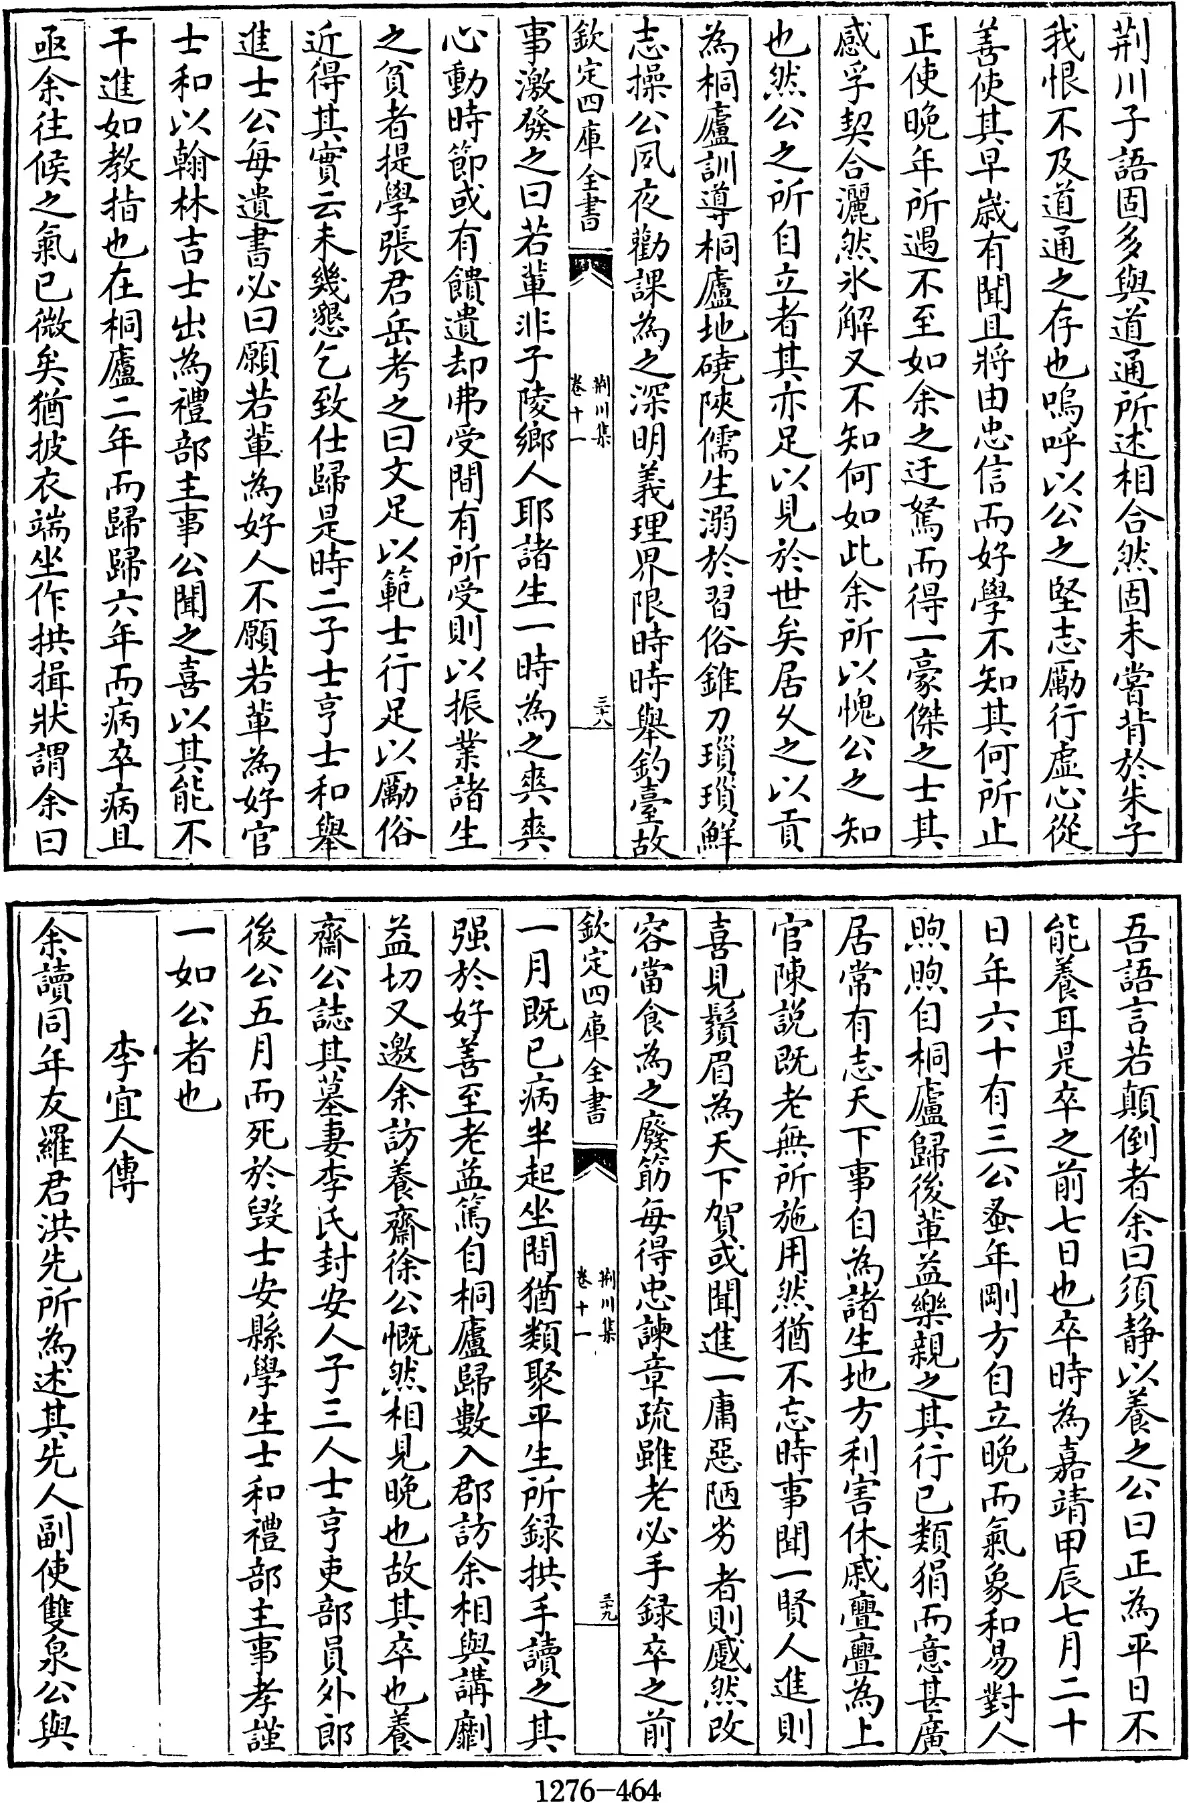 荆川子語固多與道通所述相合然固未嘗背於朱子
我恨不及道通之存也嗚呼以公之堅志勵行虚心從
善使其早嵗有聞且將由忠信而好學不知其何所止
正使晩年所遇不至如余之迂駑而得一豪傑之士其
感孚契合灑然氷解又不知何如此余所以愧公之知
也然公之所自立者其亦足以見於世矣居久之以貢
為桐廬訓導桐廬地磽陜儒生溺於習俗錐刀瑣瑣鮮
志操公夙夜勸課為之深明義理界限時時舉釣臺故
欽定四庫全書
荆川集
卷十一
三十八
事激發之曰若輩非子陵鄉人耶諸生一時為之爽爽
心動時節或有饋遺却弗受間有所受則以振業諸生
之貧者提學張君岳考之曰文足以範士行足以勵俗
近得其實云未幾懇乞致仕歸是時二子士亨士和舉
進士公每遺書必曰願若輩為好人不願若輩為好官
士和以翰林吉士出為禮部主事公聞之喜以其能不
干進如教指也在桐廬二年而歸歸六年而病卒病且
亟余往候之氣已微矣猶披衣端坐作拱揖狀謂余曰
吾語言若顛倒者余曰須静以養之公曰正為平日不
能養耳是卒之前七日也卒時為嘉靖甲辰七月二十
日年六十有三公蚤年剛方自立晩而氣象和易對人
煦煦自桐廬歸後輩益樂親之其行已類狷而意甚廣
居常有志天下事自為諸生地方利害休戚亹亹為上
官陳說既老無所施用然猶不忘時事聞一賢人進則
喜見鬚眉為天下賀或聞進一庸惡陋劣者則慼然改
容當食為之廢筯每得忠諫章疏雖老必手録卒之前
欽定四庫全書
荆川集
卷十一
三十九
一月既已病半起坐間猶類聚平生所録拱手讀之其
强於好善至老益篤自桐廬歸數入郡訪余相與講劘
益切又邀余訪養齋徐公慨然相見晩也故其卒也養
齋公誌其墓妻李氏封安人子三人士亨吏部員外郎
後公五月而死於毁士安縣學生士和禮部主事孝謹
一如公者也
李宜人傳
余讀同年友羅君洪先所為述其先人副使雙泉公與
1276-464